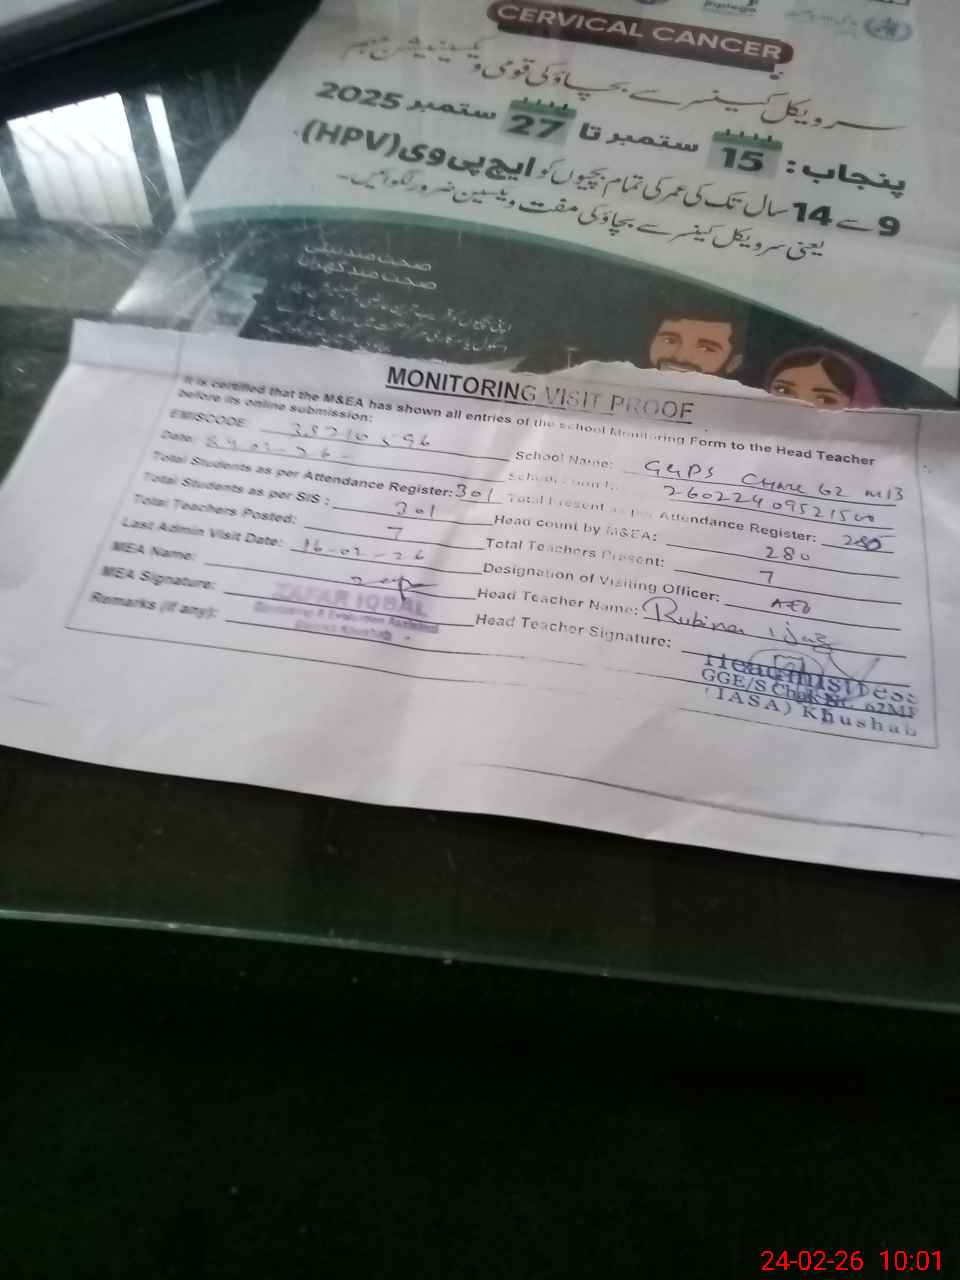 CERVICAL CANCER
سرویکل کینسر سے بچاؤ کی قومی ویکسینیشن مہم
پنجاب: 15 ستمبر تا 27 ستمبر 2025
9 سے 14 سال تک کی عمر کی تمام بچیوں کو ایچ پی وی (HPV)
یعنی سرویکل کینسر سے بچاؤ کی مفت ویکسین ضرور لگوائیں۔
صحت مند بیٹی
صحت مند گھرانہ
MONITORING VISIT PROOF
It is certified that the M&EA has shown all entries of the school Monitoring Form to the Head Teacher
before its online submission:
EMISCODE:
School Name: GGPS CHAK 62 M/3
Date:
26022409521500
Total Students as per Attendance Register: 301
Total Present as per Attendance Register: 280
Total Students as per SIS: 301
Head count by M&EA: 280
Total Teachers Posted: 7
Total Teachers Present: 7
Last Admin Visit Date: 16-02-26
Designation of Visiting Officer: AEO
MEA Name:
Head Teacher Name: Rubina Ijaz
MEA Signature:
Head Teacher Signature:
Remarks (if any):
ZAFAR IQBAL
Monitoring & Evaluation Assistant
District Khushab
Headmistress
GGE/S Chak No. 62MB
(IASA) Khushab
24-02-26 10:01